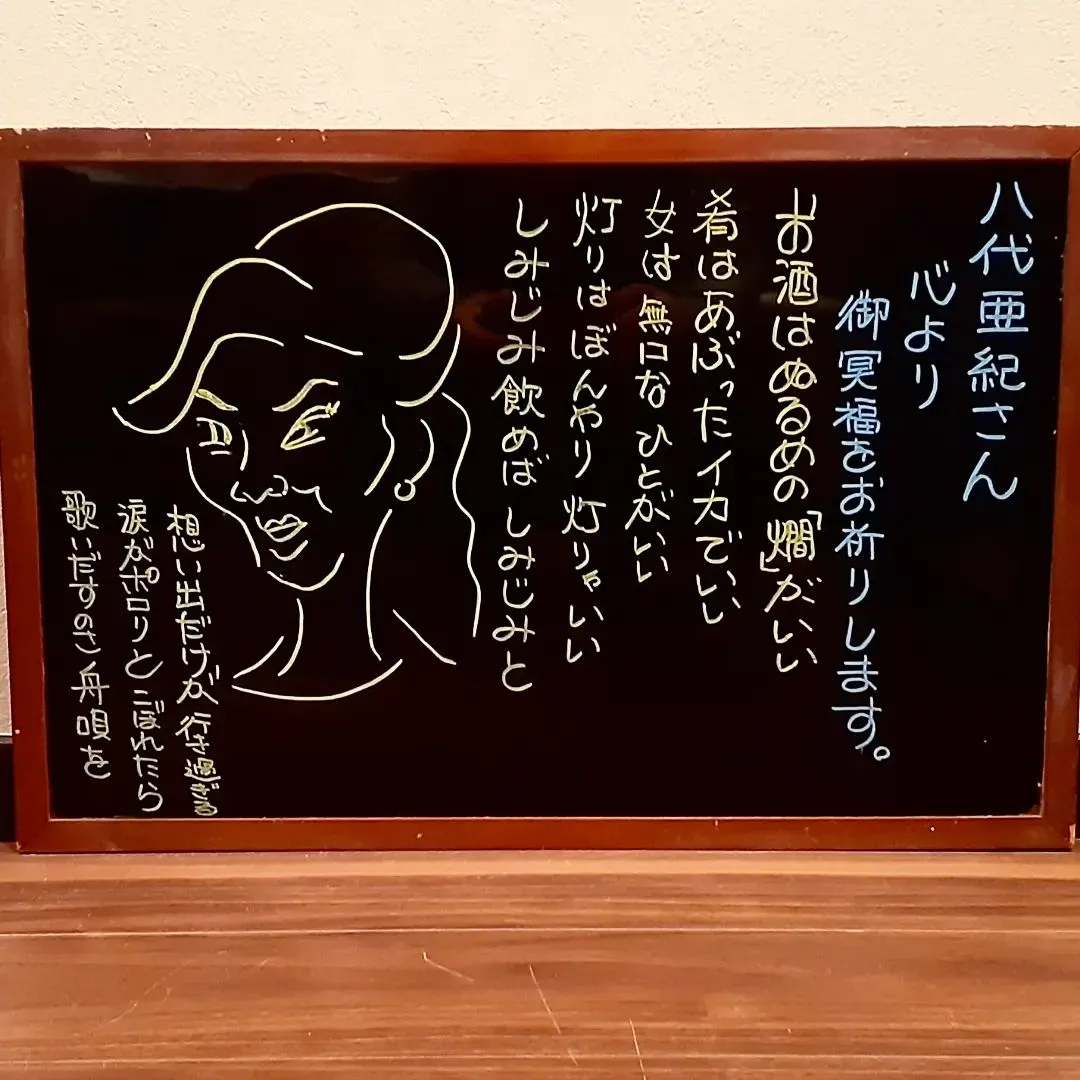 八代亜紀さん
心より
御冥福をお祈りします。
お酒はぬるめの「燗」がいい
肴はあぶったイカでいい
女は無口なひとがいい
灯りはぼんやり灯りゃいい
しみじみ飲めばしみじみと
想い出だけが行き過ぎる
涙がポロリとこぼれたら
歌いだすのさ舟唄を